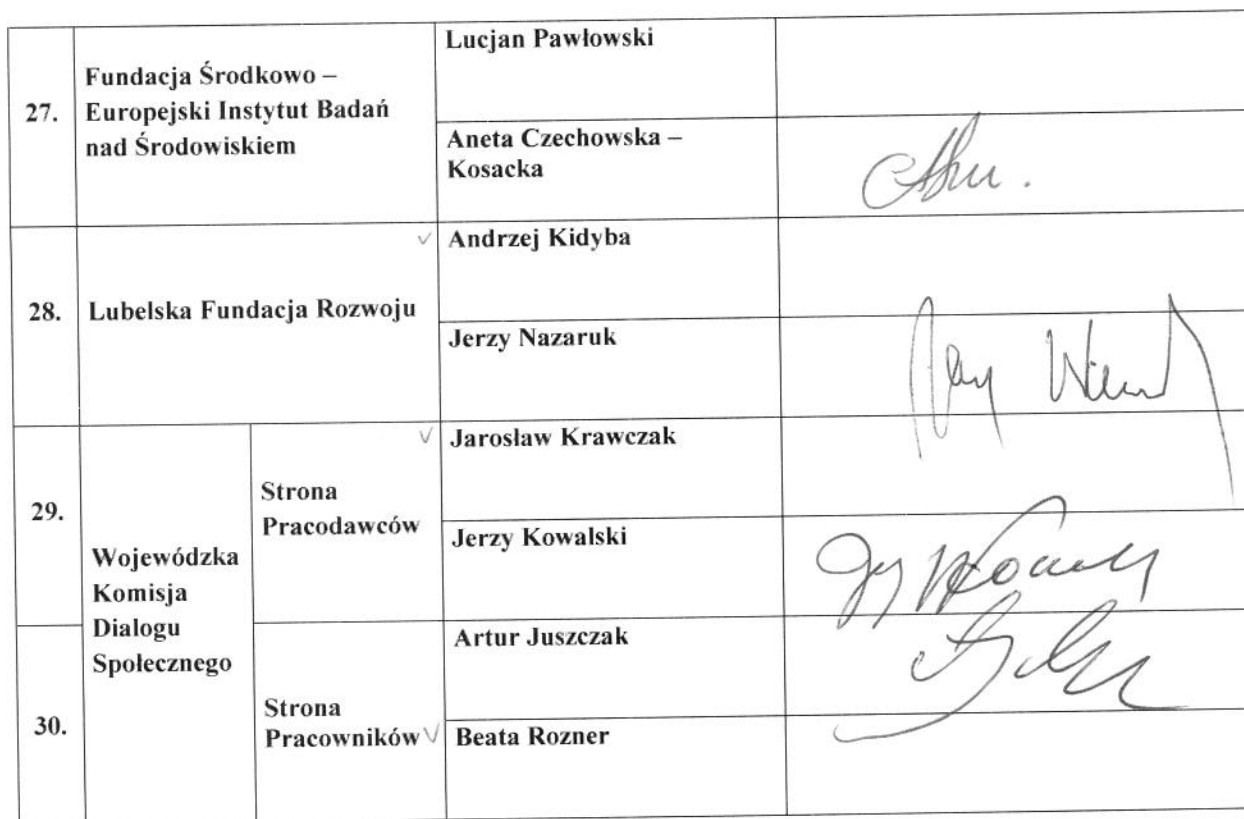 27.
Fundacja Środkowo –
Europejski Instytut Badań
nad Środowiskiem
Lucjan Pawłowski
Aneta Czechowska –
Kosacka
28.
Lubelska Fundacja Rozwoju
Andrzej Kidyba
Jerzy Nazaruk
29.
Wojewódzka
Komisja
Dialogu
Społecznego
Strona
Pracodawców
Jarosław Krawczak
Jerzy Kowalski
30.
Strona
Pracowników
Artur Juszczak
Beata Rozner